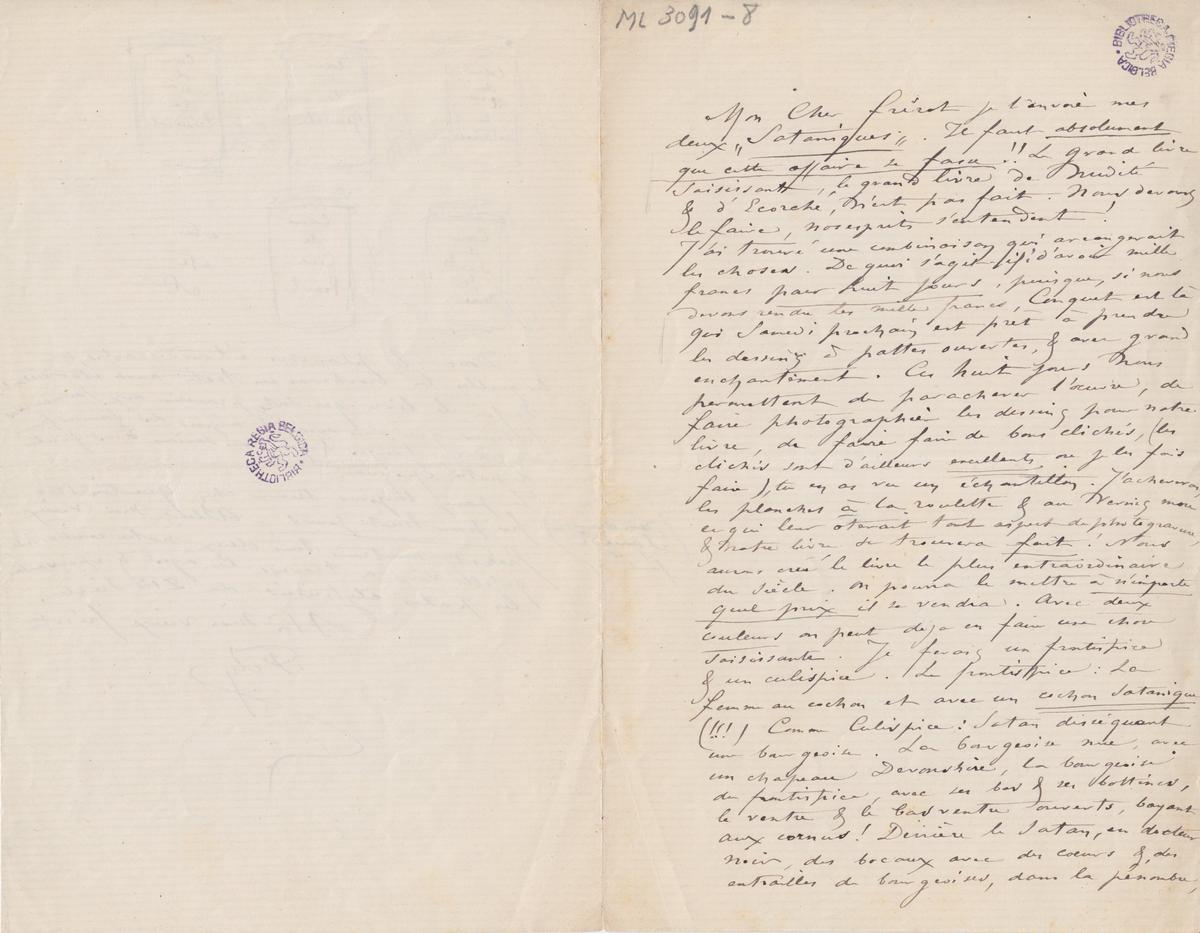 ML 3091-8
BIBLIOTHECA REGIA BELGICA
BIBLIOTHECA REGIA BELGICA
Mon Cher frérot je t'envoie mes
deux „Sataniques„. Il faut absolument
que cette affaire se fasse !! Le grand livre
saisissant, le grand livre de Nudité
& d'Ecorché, n'est pas fait. Nous devons
le faire, nos esprits s'entendent !
J'ai trouvé une combinaison qui arrangerait
les choses. De quoi s'agit-il ? d'avoir mille
francs pour huit jours, puisque, si nous
devons rendre les mille francs, Conquet est là
qui Samedi prochain est prêt à prendre
les dessins à pattes ouvertes, & avec grand
enchantement. Ces huit jours nous
permettent de parachever l'œuvre, de
faire photographier les dessins pour notre
livre, de faire faire de bons clichés, (les
clichés sont d'ailleurs excellents où je les fais
faire), tu en as vu un échantillon. J'acheverai
les planches à la roulette & au Vernis mou
ce qui leur ôterait tout aspect de photogravure
& notre livre se trouvera fait ! Nous
aurons créé le livre le plus extraordinaire
du Siècle. on pourra le mettre à n'importe
quel prix il se vendra. Avec deux
couleurs on peut deja en faire une chose
saisissante. Je ferais un frontispice
& un culispice. Le frontispice : La
femme au cochon et avec un cochon Satanique
(!!!) Comme Culispice : Satan disséquant
une bourgeoise. La bourgeoise nue, avec
un chapeau Devonshire, la bourgeoise
du frontispice, avec ses bas & ses bottines,
le ventre & le bas ventre ouverts, bayant
aux cornes ! Derrière le Satan, en docteur
noir, des bocaux avec des cœurs & des
entrailles de bourgeoises, dans la pénombre,